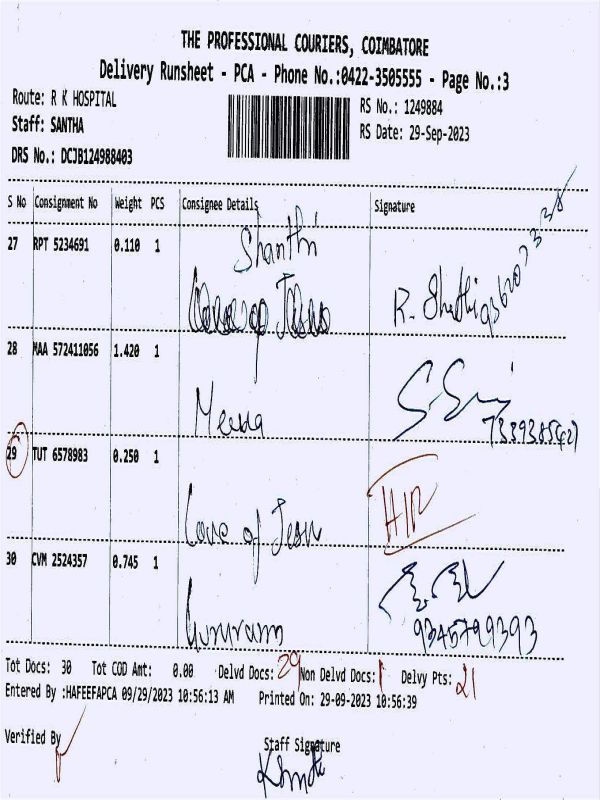 THE PROFESSIONAL COURIERS, COIMBATORE
Delivery Runsheet - PCA - Phone No.:0422-3505555 - Page No.:3
Route: R K HOSPITAL
RS No.: 1249884
Staff: SANTHA
RS Date: 29-Sep-2023
DRS No.: DCJB124988403
S No Consignment No Weight PCS Consignee Details Signature
Shanthi
27 RPT 5234691 0.110 1
28 MAA 572411056 1.420 1
Meena
7339385427
29 TUT 6578983 0.250 1
Love of Jesus
30 CVM 2524357 0.745 1
Gururam
9345799393
Tot Docs: 30 Tot COD Amt: 0.00 Delvd Docs: 29 Non Delvd Docs: 1 Delvy Pts: 21
Entered By :HAFEEFAPCA 09/29/2023 10:56:13 AM Printed On: 29-09-2023 10:56:39
Verified By
Staff Signature